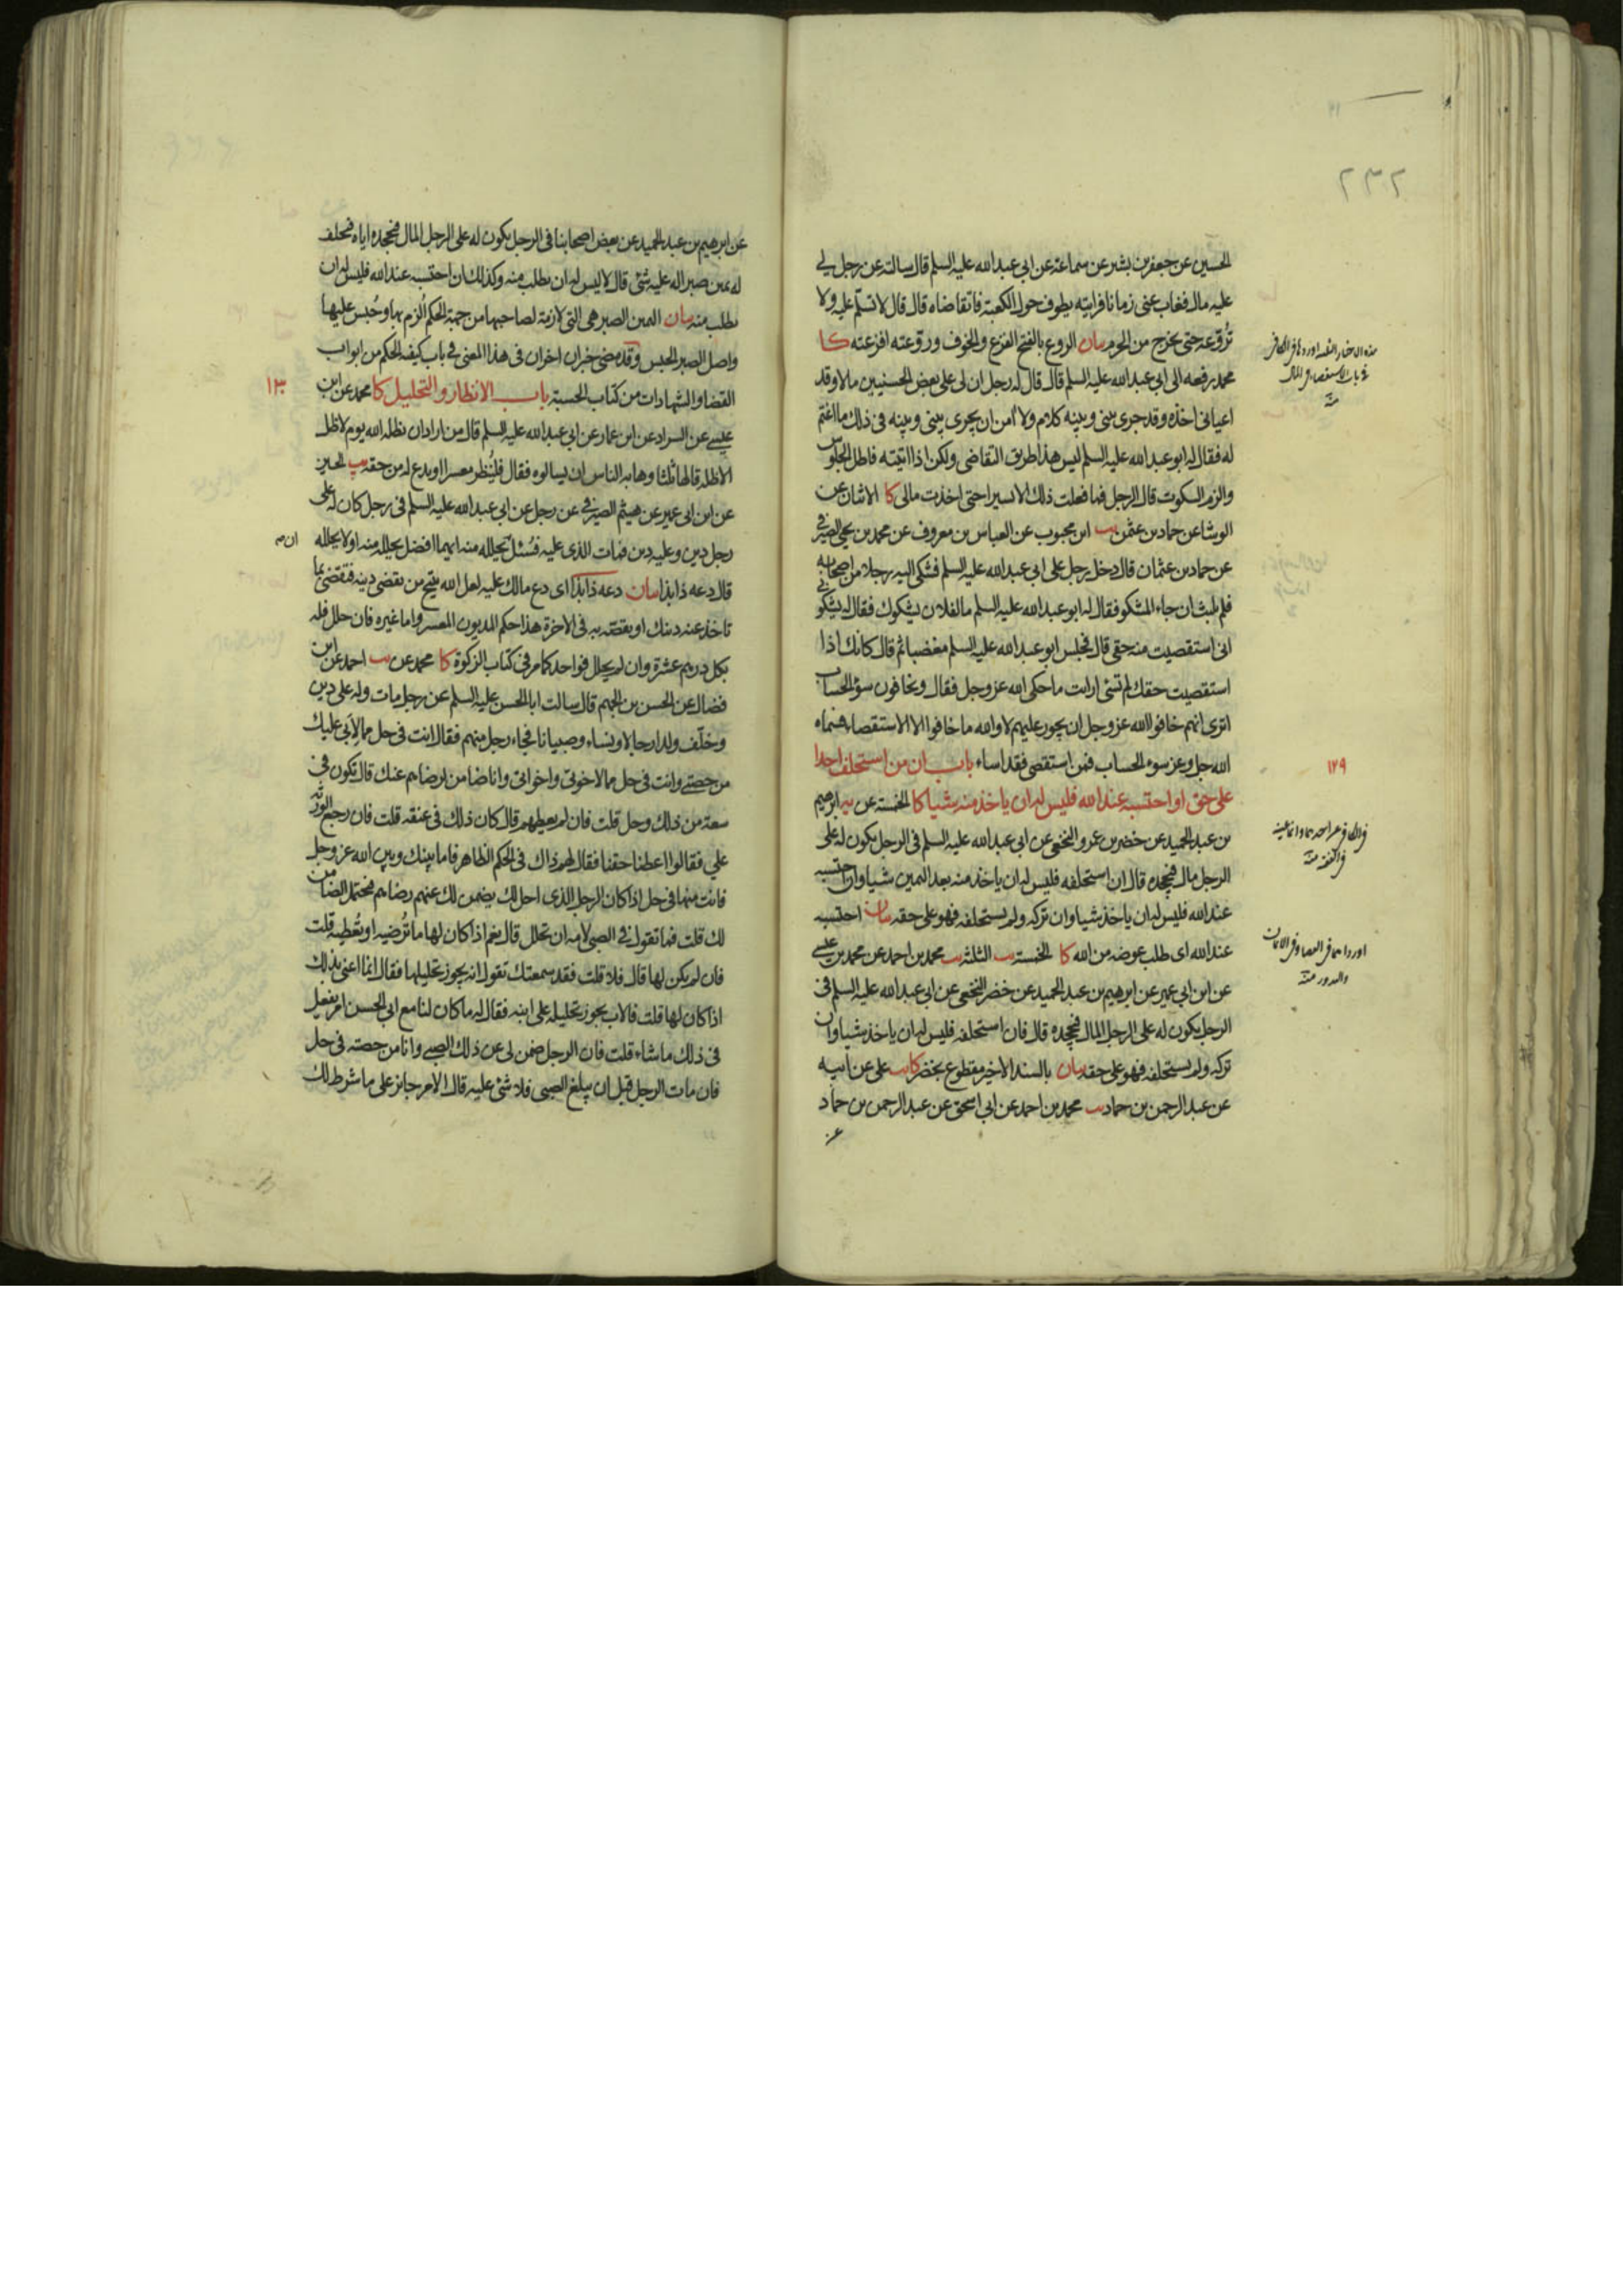 ٢٣٢
الحسين عن جعفر بن بشير عن سماعة عن ابي عبدالله عليه السلم قال سالته عن رجل لي
عليه مال فغاب عني زمانا فرايته يطوف حول الكعبة فاتقاضاه قال قال لا تسلم عليه ولا
تروعه حتى يخرج من الحرم بيان الروع بالفتح الفزع والخوف وروعته افزعته كا
محمد رفعه الى ابي عبدالله عليه السلم قال قال له رجل ان لي على بعض الحسنيين مالا وقد
اعياني اخذه وقد جرى بيني وبينه كلام ولا آمن ان يجري بيني وبينه في ذلك ما اغتم
له فقال له ابو عبدالله عليه السلم ليس هذا طريق التقاضي ولكن اذا اتيته فاطل الجلوس
والزم السكوت قال الرجل فما فعلت ذلك الا يسيرا حتى اخذت مالي كا الاثنان عن
الوشا عن حماد بن عثمن يب ابن محبوب عن العباس بن معروف عن محمد بن يحيى الصيرفي
عن حماد بن عثمان قال دخل رجل على ابي عبدالله عليه السلم فشكى اليه رجلا من اصحابه
فلم يلبث ان جاء المشكو فقال له ابو عبدالله عليه السلم ما لفلان يشكوك فقال له يشكوني
اني استقصيت منه حقي قال فجلس ابو عبدالله عليه السلم مغضبا ثم قال كانك اذا
استقصيت حقك لم تسئ ارايت ما حكى الله عز وجل فقال ويخافون سوء الحساب
اترى انهم خافوا الله عز وجل ان يجور عليهم لا والله ما خافوا الا الاستقصاء فسماه
الله جل وعز سوء الحساب فمن استقصى فقد اساء باب ان من استحلف احدا
١٢٩
على حق او احتسبه عند الله فليس له ان ياخذ منه شيا كا الخمسة عن يه ابرهيم
بن عبدالحميد عن خضر بن عمرو النخعي عن ابي عبدالله عليه السلم في الرجل يكون له على
الرجل مال فيجحده قال ان استحلفه فليس له ان ياخذ منه بعد اليمين شيا وان احتسبه
عند الله فليس له ان ياخذ شيا وان تركه ولم يستحلفه فهو على حقه بيان احتسبه
عند الله اي طلب عوضه من الله كا الخمسة يب الثلثة يب محمد بن احمد عن محمد بن عيسى
عن ابن ابي عمير عن ابرهيم بن عبد الحميد عن خضر النخعي عن ابي عبدالله عليه السلم في
الرجل يكون له على الرجل المال فيجحده قال فان استحلفه فليس له ان ياخذ شيا وان
تركه ولم يستحلفه فهو على حقه بيان بالسند الاخير مقطوع بخضر كا يب علي عن ابيه
عن عبد الرحمن بن حماد يب محمد بن احمد عن ابي اسحق عن عبد الرحمن بن حماد
عن
عن ابرهيم بن عبد الحميد عن بعض اصحابنا في الرجل يكون له على الرجل المال فيجحده اياه فيحلف
له يمين صبر اله عليه شئ قال لا ليس له ان يطلب منه وكذلك ان احتسبه عند الله فليس له ان
يطلب منه بيان اليمين الصبر هي التي لازمة لصاحبها من جهة الحكم الزم بها وحبس عليها
واصل الصبر الحبس وقد مضى خبران اخران في هذا المعنى في باب كيفية الحكم من ابواب
القضا والشهادات من كتاب الحسبة باب الانظار والتحليل كا محمد عن ابن
١٣٠
عيسى عن السراد عن ابن عمار عن ابي عبدالله عليه السلم قال من اراد ان يظله الله يوم لا ظل
الا ظله قالها ثلثا وهابه الناس ان يسالوه فقال فلينظر معسرا او يدع له من حقه يب الحسين
عن ابن ابي عمير عن هيثم الصيرفي عن رجل عن ابي عبدالله عليه السلم في رجل كان له على
رجل دين وعليه دين فمات الذي عليه فسئل ان يحلله منه ايهما افضل يحلله منه او لا يحلله
قال دعه ذا بذا بيان دعه ذا بذا اي دع مالك عليه لعل الله يتيح من يقضي دينه فتقضي بما
تاخذ عنه دينك او يقضيه به في الاخرة هذا حكم المديون المعسر واما غيره فان حلل فله
بكل درهم عشرة وان لم يحلل فواحد كما مر في كتاب الزكوة كا محمد عن يب احمد عن ابن
فضال عن الحسن بن الجهم قال سالت ابا الحسن عليه السلم عن رجل مات وله علي دين
وخلف ولدا رجالا ونساء وصبيانا فجاء رجل منهم فقال انت في حل مما لابي عليك
من حصتي وانت في حل مما لاخوتي واخواتي وانا ضامن لرضاهم عنك قال تكون في
سعة من ذلك وحل قلت فان لم يعطهم قال كان ذلك في عنقه قلت فان رجع الورثة
علي فقالوا اعطنا حقنا فقال لهم ذاك في الحكم الظاهر فاما بينك وبين الله عز وجل
فانت منها في حل اذا كان الرجل الذي احل لك يضمن لك عنهم رضاهم فيحتمل الضامن
لك قلت فما تقول في الصبي لامه ان تحلل قال نعم اذا كان لها ما ترضيه او تعطيه قلت
فان لم يكن لها قال فلا قلت فقد سمعتك تقول انه يجوز تحليلها فقال انما اعني بذلك
اذا كان لها قلت فالاب يجوز تحليله على ابنه فقال له ما كان لنا مع ابي الحسن امر يفعل
في ذلك ما شاء قلت فان الرجل ضمن لي عن ذلك الصبي وانا من حصته في حل
فان مات الرجل قبل ان يبلغ الصبي فلا شئ عليه قال الامر جائز على ما شرط لك